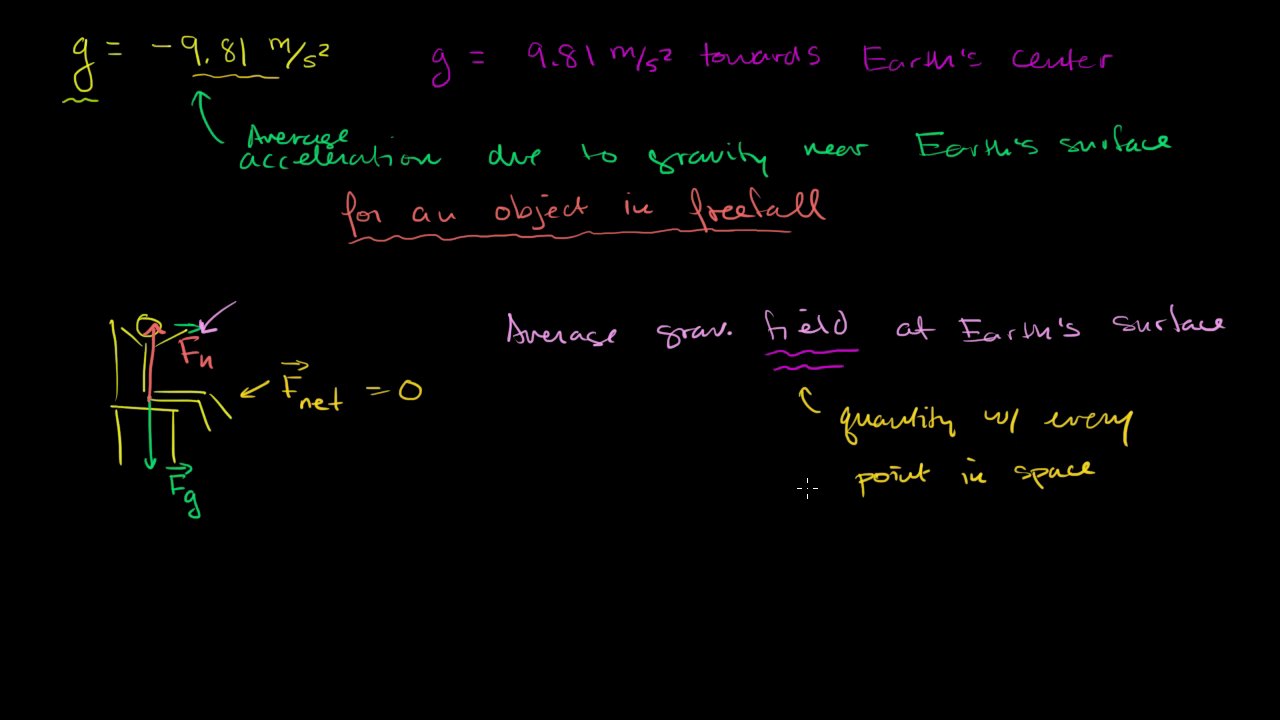 g = -9.81 m/s² g = 9.81 m/s² towards Earth's center
Average
acceleration due to gravity near Earth's surface
for an object in freefall
Average grav. field at Earth's surface
Fn
Fnet = 0
quantity w/ every
point in space
Fg